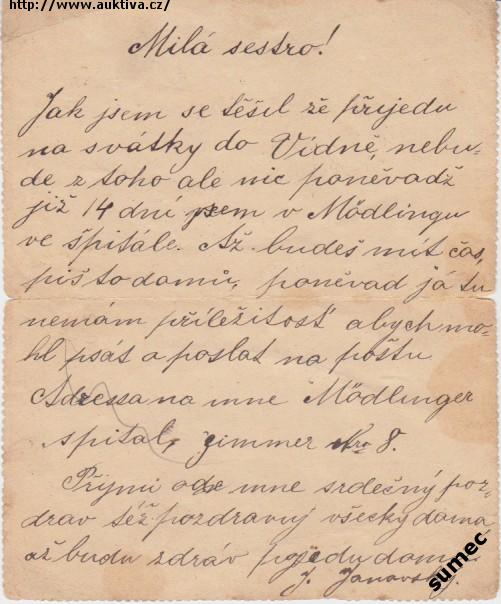 http://www.auktiva.cz/
Milá sestro!
Jak jsem se těšil že přijedu
na svátky do Vídně, nebu-
de z toho ale nic poněvadž
již 14 dní jsem v Mödlingu
ve špitále. Až budeš mít čas,
piš to domů, poněvad já tu
nemám příležitosť abych mo-
hl psát a poslat na poštu
Adressa na mne Mödlinger
spital, zimmer Nro 8.
Přijmi ode mne srdečný poz-
drav též pozdravuj všecky doma
až budu zdráv pojedu domů
J. Janovs
sumec